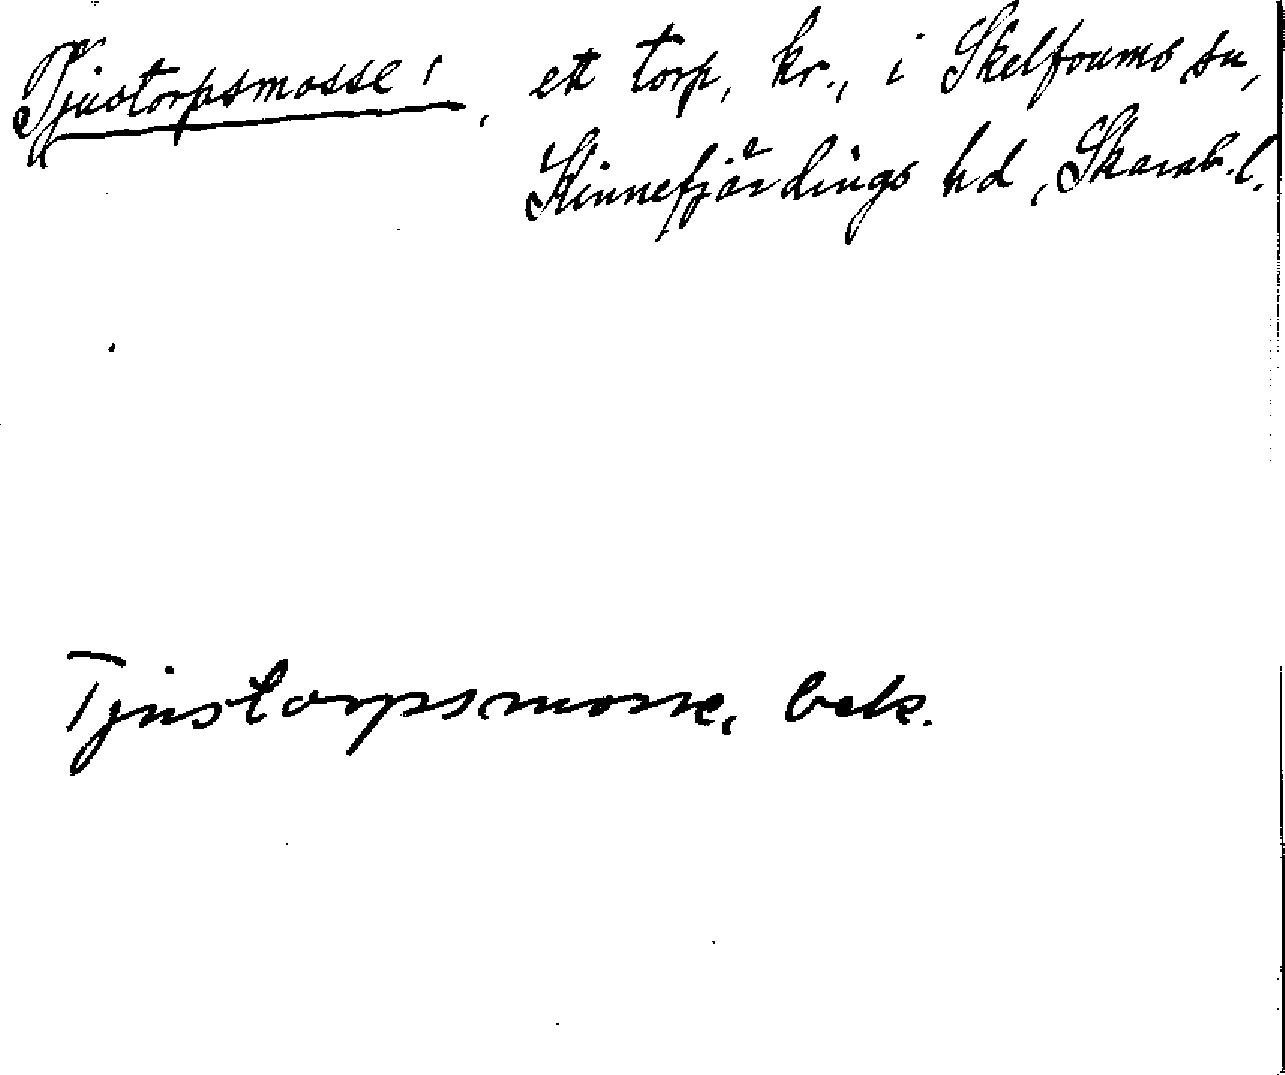 Tjustorpsmosse, ett torp, kr., i Skelfoums sn,
Kinnefjärdings hd, Skarab.l.
Tjustorpsmosse, bek.